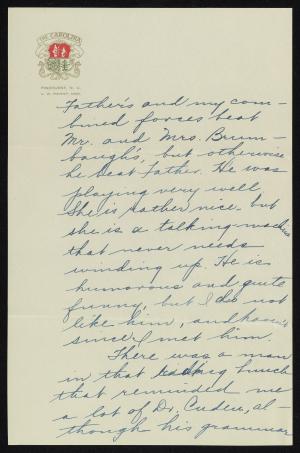 THE CAROLINA
PINEHURST, N. C.
Father's and my com-
bined forces beat
Mr. and Mrs. Brum-
baugh's, but otherwise
he beat Father. He was
playing very well
She is rather nice but
she is a talking-machine
that never needs
winding up. He is
humorous and quite
funny, but I do not
like him, and haven't
since I met him.
There was a man
in that bunch
that reminded me
a lot of Dr. al-
though his grammar